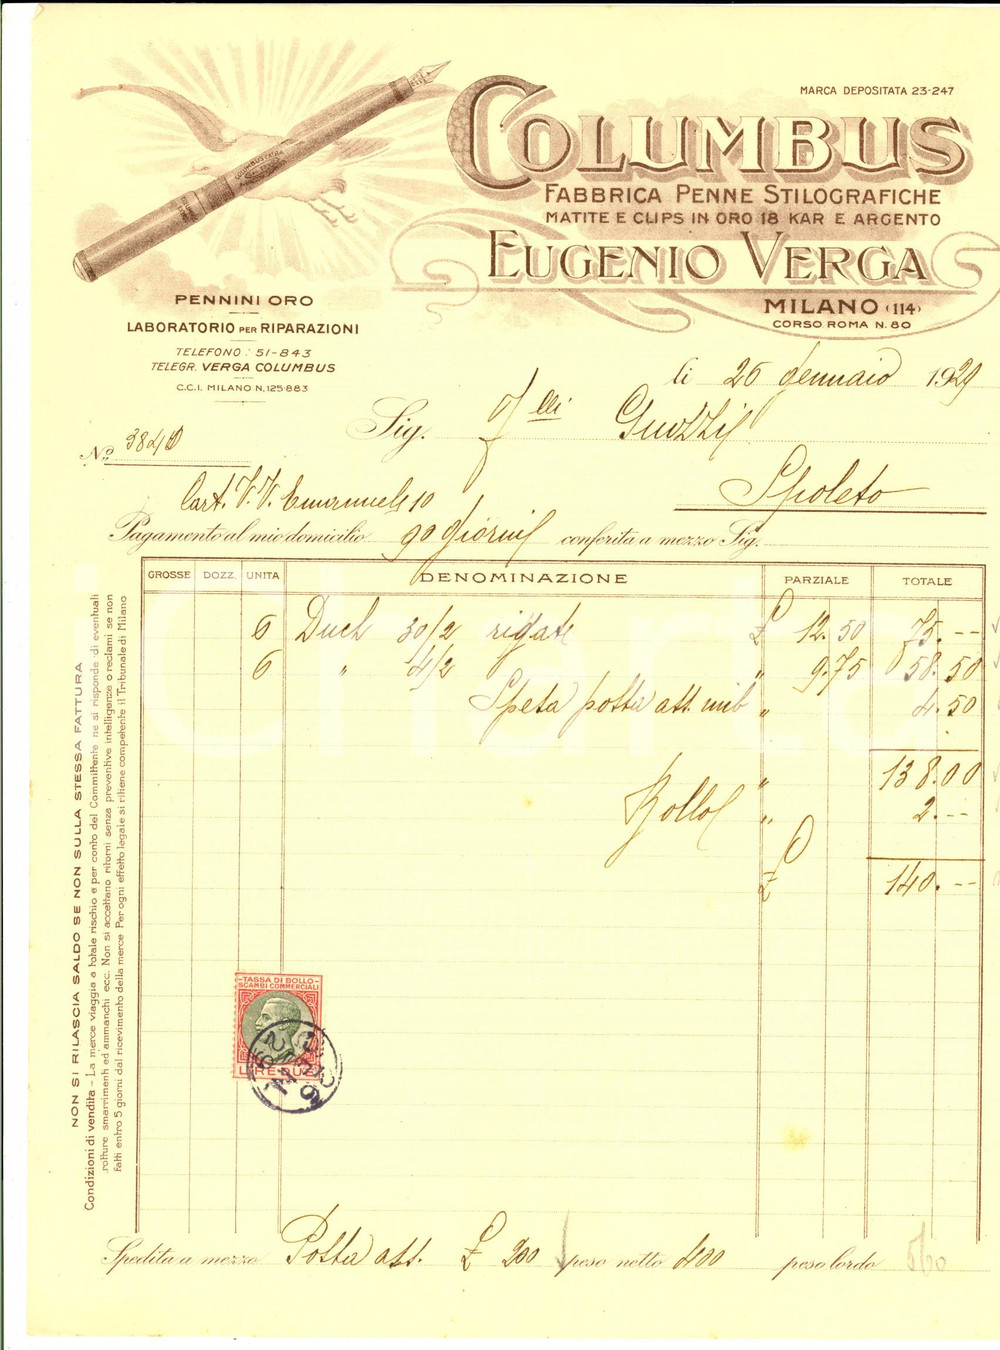 MARCA DEPOSITATA 23-247
COLUMBUS
FABBRICA PENNE STILOGRAFICHE
MATITE E CLIPS IN ORO 18 KAR E ARGENTO
EUGENIO VERGA
MILANO (114)
CORSO ROMA N. 80
PENNINI ORO
LABORATORIO PER RIPARAZIONI
TELEFONO: 51-843
TELEGR. VERGA COLUMBUS
C.C.I. MILANO N. 125883
li 26 Gennaio 1929
Sig. F.lli
N.º 3840
Spoleto
Cart. V. V. Emanuele 10
Pagamento al mio domicilio 90 giorni conferita a mezzo Sig.
GROSSE DOZZ. UNITA DENOMINAZIONE PARZIALE TOTALE
6 Duch 30/2 rigate £ 12.50 75.--
6 " 4/2 " 9.75 58.50
Spesa posta att. imb " 4.50
" 138.00
Bollo " 2.--
£ 140.--
TASSA DI BOLLO
SCAMBI COMMERCIALI
LIRE DUE
NON SI RILASCIA SALDO SE NON SULLA STESSA FATTURA
Condizioni di vendita - La merce viaggia a totale rischio e per conto del Committente ne si risponde di eventuali
rotture smarrimenti ed ammanchi ecc. Non si accettano ritorni senza preventive intelligenze o reclami se non
fatti entro 5 giorni dal ricevimento della merce Per ogni effetto legale si ritiene competente il Tribunale di Milano
Spedita a mezzo Posta att. £ 200 peso netto 400 peso lordo 560